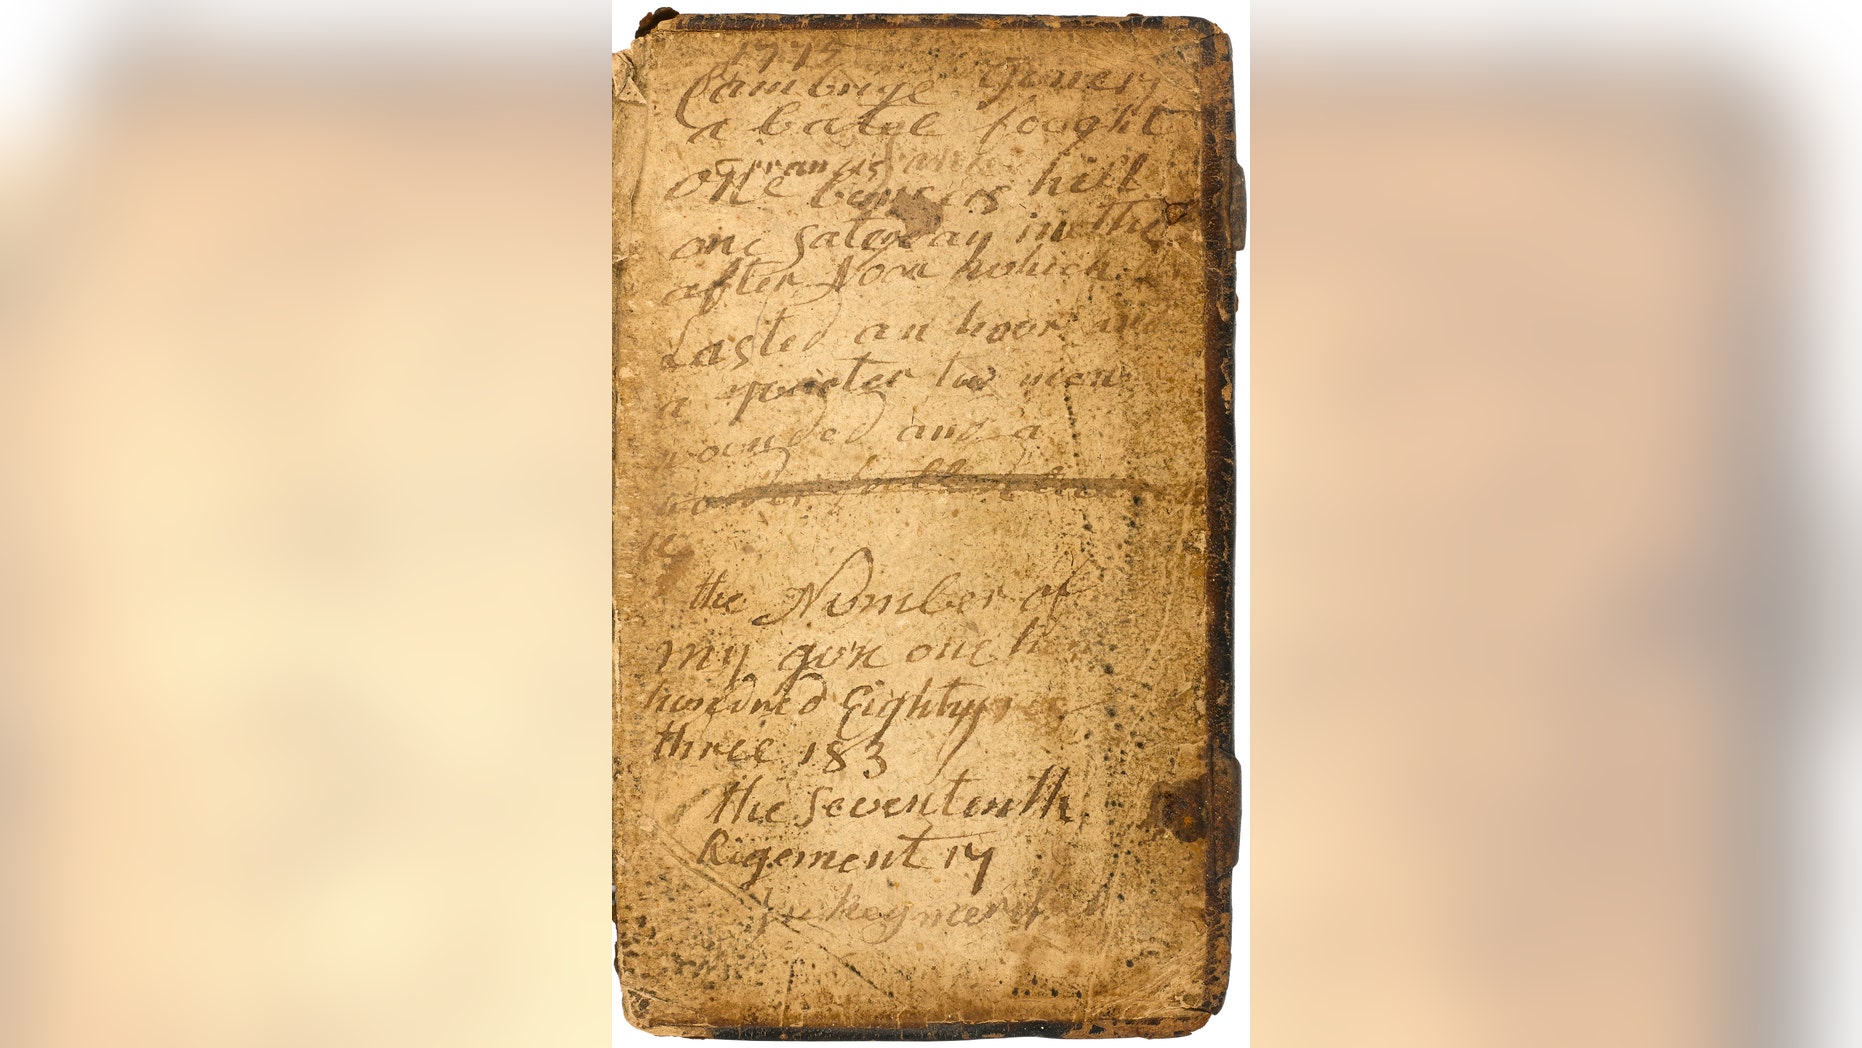 1775
Cambrige June 17
a batel fought
Francis
one bunkers hill
one saterday in the
after Noon which
Lasted an hour and
a quarter two men
wounded and a
the Number of
my gun one hun
hundred Eighty
three 183
the sevententh
Rigement 17